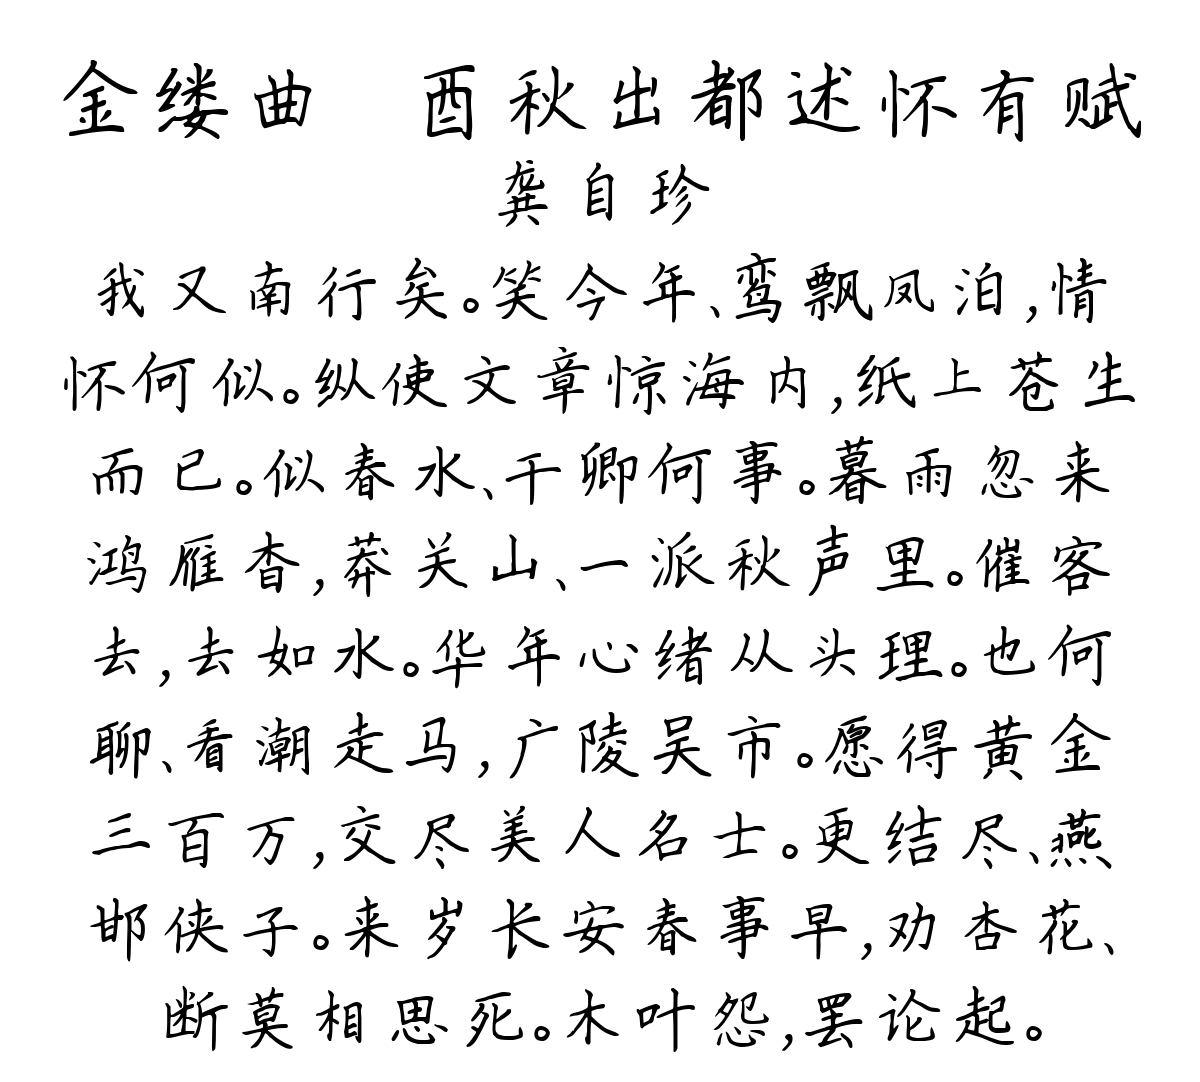 金缕曲　酉秋出都述怀有赋
龚自珍
我又南行矣。笑今年、鸾飘凤泊,情
怀何似。纵使文章惊海内,纸上苍生
而已。似春水、干卿何事。暮雨忽来
鸿雁杳,莽关山、一派秋声里。催客
去,去如水。华年心绪从头理。也何
聊、看潮走马,广陵吴市。愿得黄金
三百万,交尽美人名士。更结尽、燕
邯侠子。来岁长安春事早,劝杏花、
断莫相思死。木叶怨,罢论起。